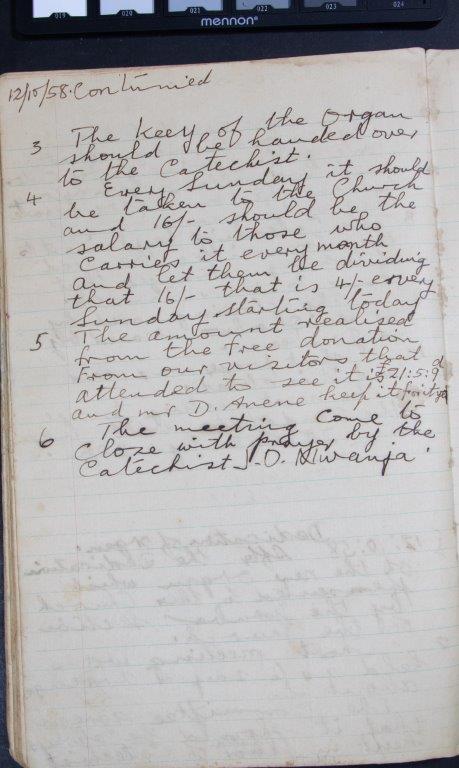 019 020 021 022 023 024
mennon
12/10/58. Continued
3 The Key of the Organ
should be handed over
to the Catechist.
4 Every Sunday it should
be taken to the Church
and 16/- should be the
salary to those who
carries it every month
and let them be dividing
that 16/- that is 4/- every
Sunday starting today
5 The amount realised
from the free donation
From our visitors that
attended to see it is £21:5:9d
and mr D. Anene keep it
6 The meeting come to
close with prayer by the
Catechist J. O. Nwanja.